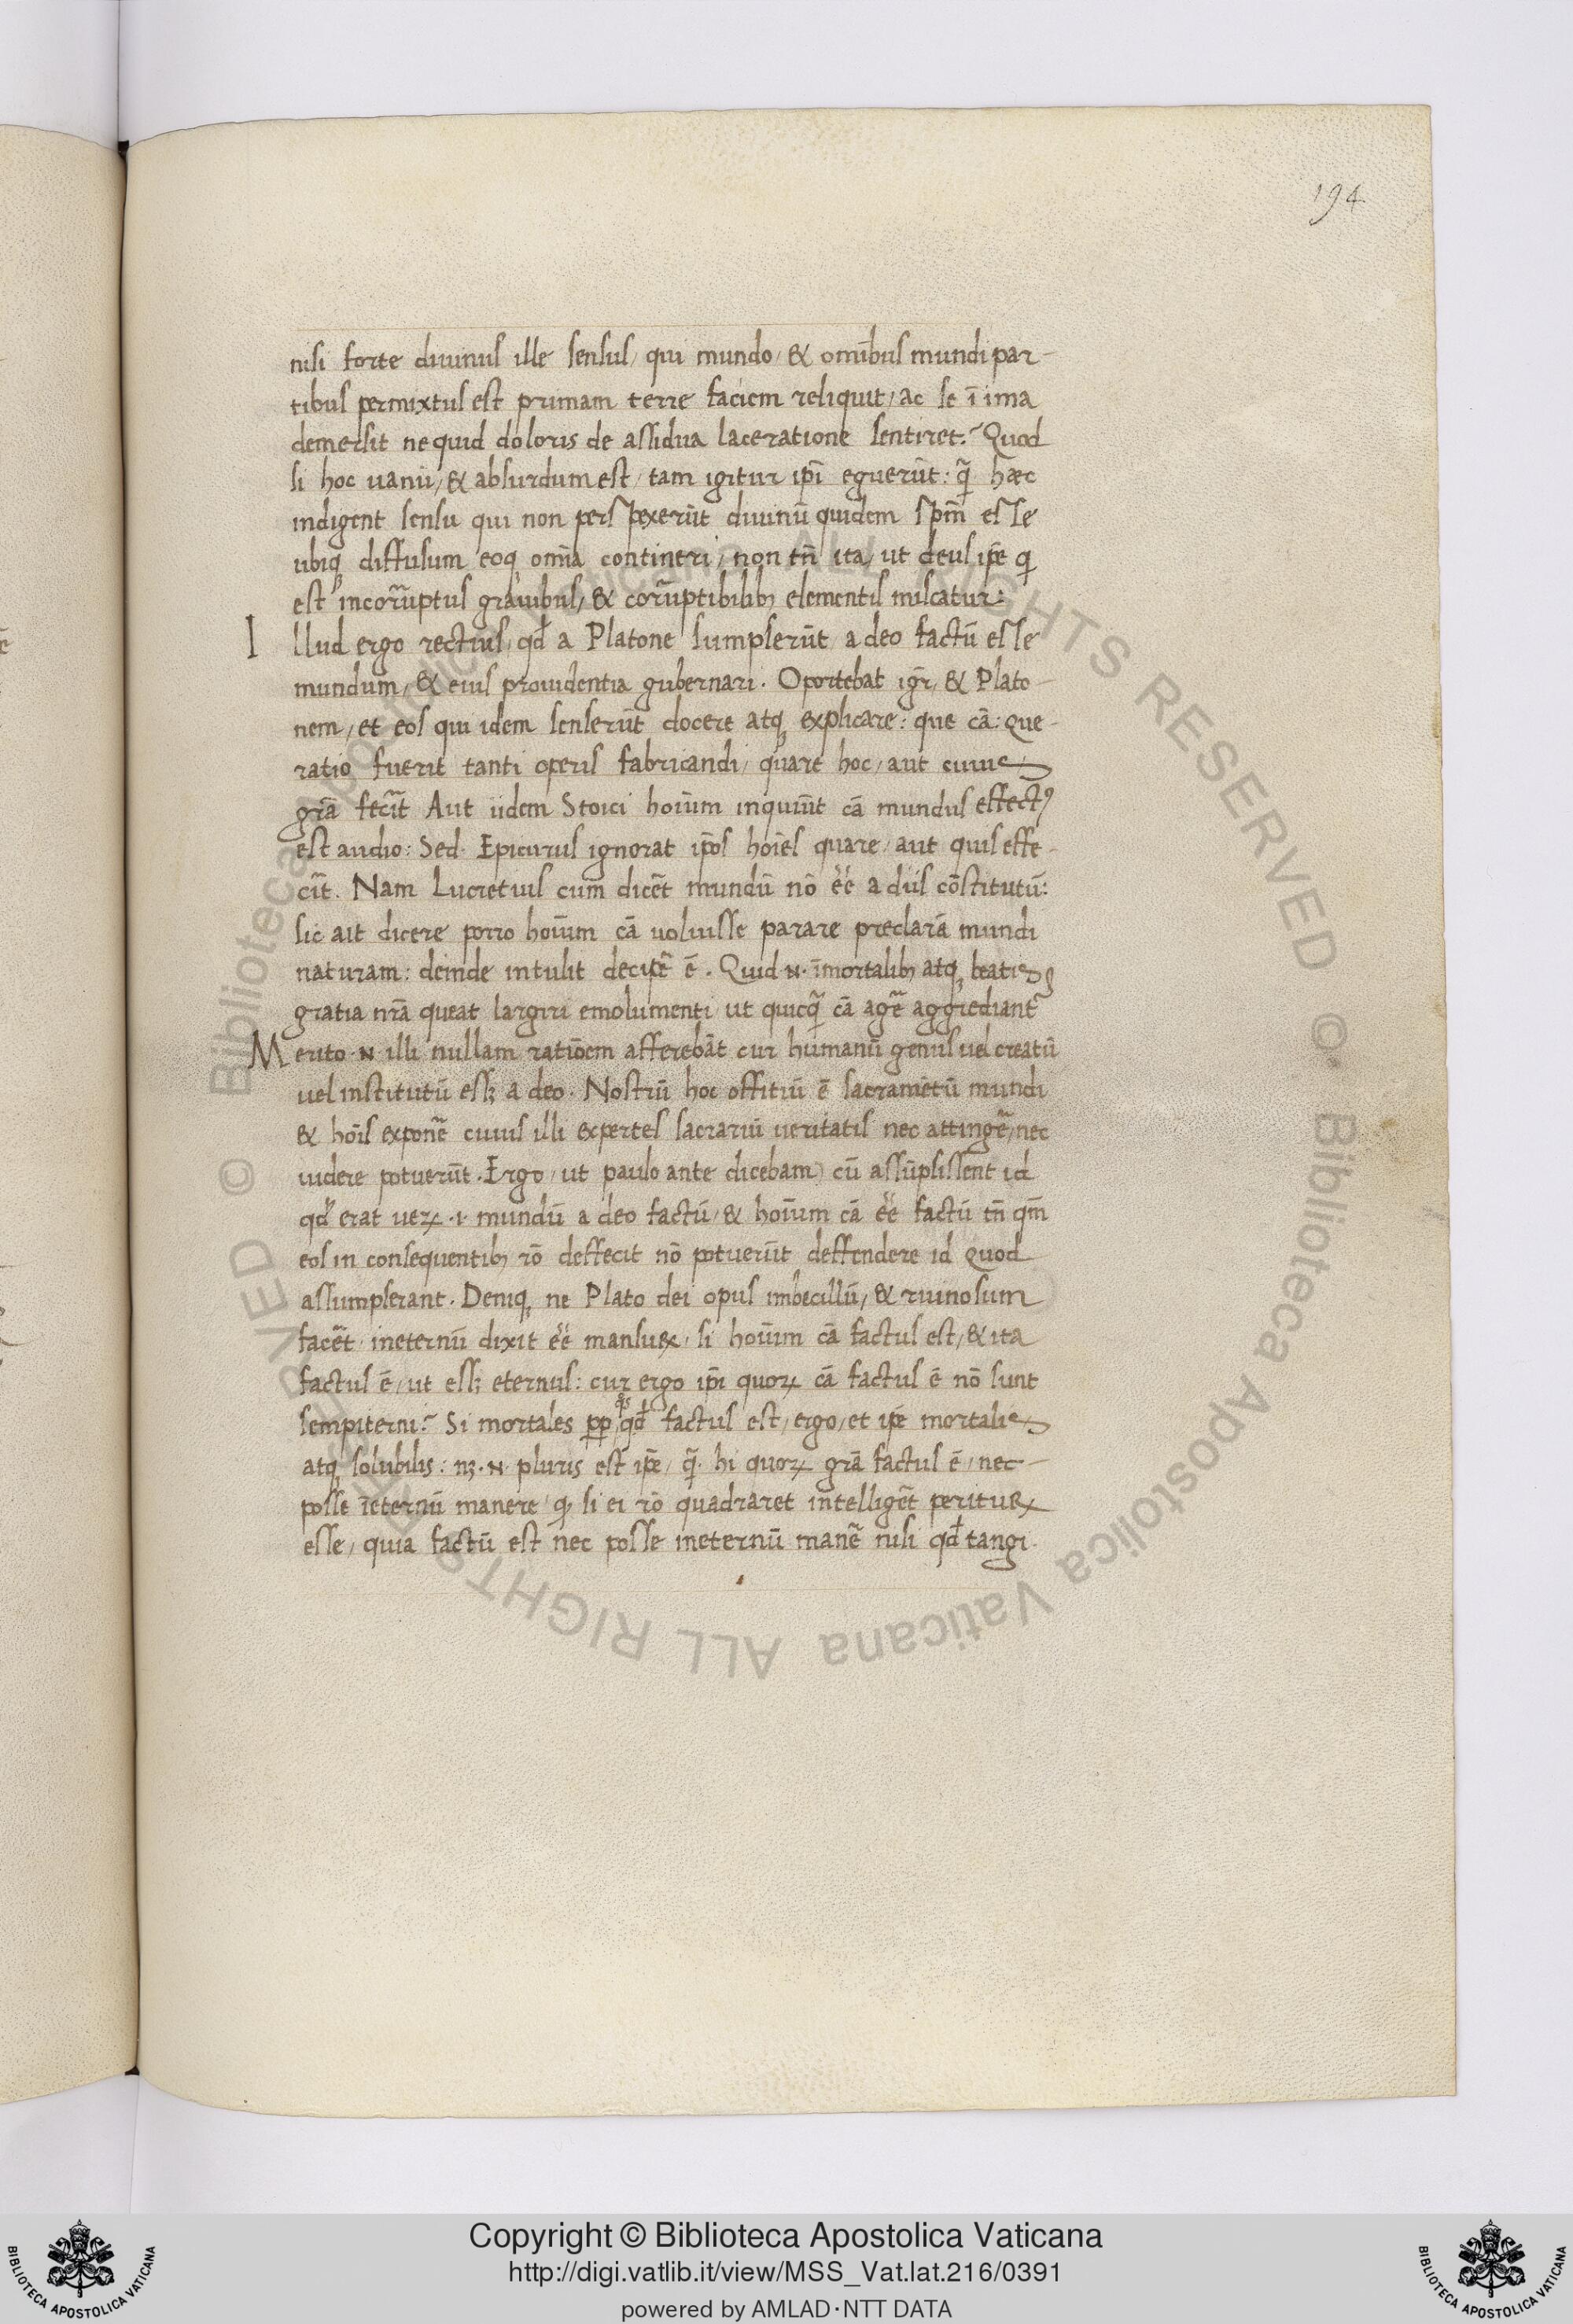 194
nisi forte diuinus ille sensus, qui mundo, & omībus mundi par-
tibus permixtus est primam terre faciem reliquit, ac se ī ima
demersit ne quid doloris de assidua laceratione sentiret? Quod
si hoc uanū, & absurdum est, tam igitur ip̄i eguerūt: q̄ hæc
indigent sensu qui non perspexerūt diuinū quidem sp̄m esse
ubiq; diffusum eoq; omīa contineri, non tn̄ ita, ut deus ip̄e q̣
est incorruptus grauibus, & corruptibilib; elementis miscatur:
Illud ergo rectius, qd̄ a Platone sumpserūt, a deo factū esse
mundum, & eius prouidentia gubernari. Oportebat igr̄, & Plato-
nem, et eos qui idem senserūt docere atq; explicare: que cā: que-
ratio fuerit tanti operis fabricandi, quare hoc, aut cuius
grā fecīt Aut iidem Stoici hoīum inquiūt cā mundus effectꝰ
est audio: Sed Epicurus ignorat ip̄os hoīes quare, aut quis effe-
cīt. Nam Lucretius cum dicēt mundū nō ēē a diis cōstitutū:
sic ait dicere porro hoīum cā uoluisse parare preclarā mundi
naturam: deinde intulit decipē ē. Quid .N. īmortalib; atq; beatis
gratia nrā queat largiri emolumenti, ut quicq̄ cā agē aggrediant᷑
Merito .N. illi nullam ratiōem afferebāt cur humanū genus uel creatū
uel institutū ess; a deo. Nostrū hoc offitiū ē sacramētū mundi
& hoīs exponē cuius illi expertes sacrariū ueritatis nec attingē, nec
uidere potuerūt. Ergo, ut paulo ante dicebam) cū assūpsissent id
qd̄ erat ueꝝ .i. mundū a deo factū, & hoīum cā ēē factū tn̄ qm̄
eos in consequentib; rō deffecit nō potuerūt deffendere id quod
assumpserant. Deniq; ne Plato dei opus imbecillū, & ruinosum
facēt, ineternū dixit ēē mansuꝝ, si hoīum cā factus est, & ita
factus ē, ut ess; eternus: cur ergo ip̄i quoꝝ cā factus ē nō sunt
sempiterni? Si mortales pp̄ qͦs qd̄ factus est, ergo, et ip̄e mortalis
atq; solubilis: nꝫ .N. pluris est ip̄e, q̄ hi quoꝝ grā factus ē, nec-
posse īeternū manere, q; si ei rō quadraret intelligēt perituꝝ
esse, quia factū est nec posse ineternū manē nisi qd̄ tangi.
Copyright © Biblioteca Apostolica Vaticana
http://digi.vatlib.it/view/MSS_Vat.lat.216/0391
powered by AMLAD·NTT DATA
BIBLIOTECA APOSTOLICA VATICANA
BIBLIOTECA APOSTOLICA VATICANA
© Biblioteca Apostolica Vaticana ALL RIGHTS RESERVED © Biblioteca Apostolica Vaticana ALL RIGHTS RESERVED